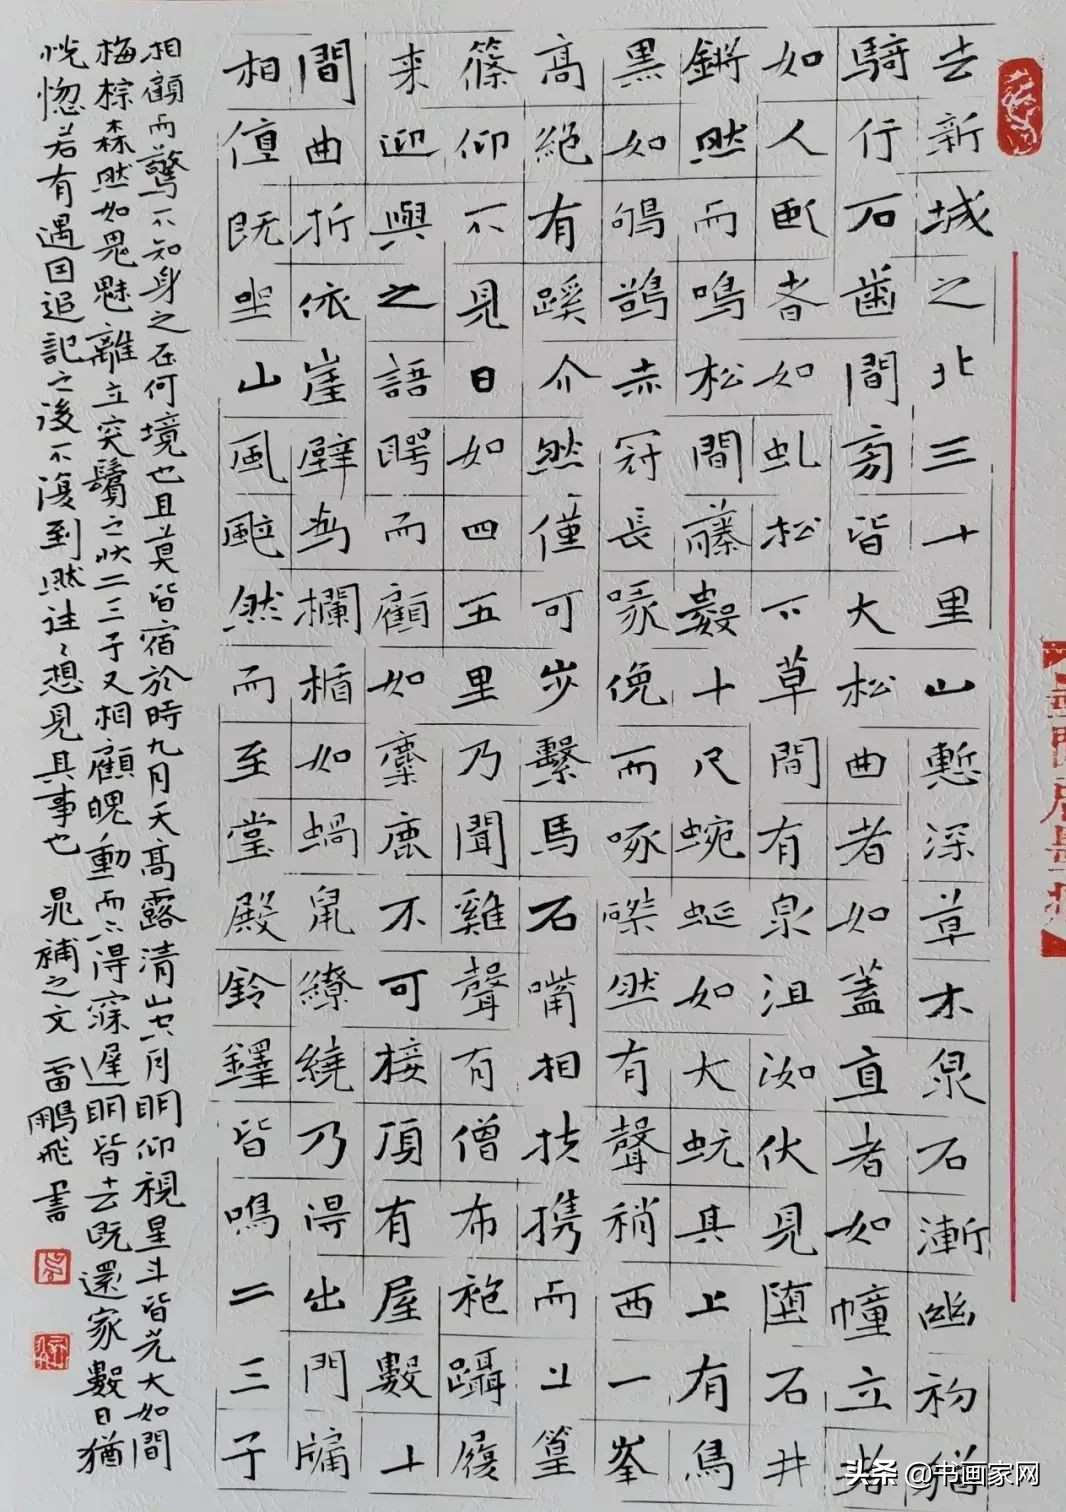 去新城之北三十里山慙深草木泉石漸幽初猶
騎行石齒間旁皆大松曲者如蓋直者如幢立者
如人臥者如虬松下草間有泉沮洳伏見堕石井
鏘然而鳴松間藤數十尺蜿蜒如大蚖其上有鳥
黑如鴝鵒赤冠長喙俛而啄磔然有聲稍西一峯
高絕有蹊介然僅可步繫馬石嘴相扶攜而上篁
篠仰不見日如四五里乃聞雞聲有僧布袍躡履
来迎與之語愕而顧如麋鹿不可接頂有屋數十
間曲折依崖壁為欄楯如蝸鼠繚繞乃得出門牖
相值既坐山風颯然而至堂殿鈴鐸皆鳴二三子
相顧而驚不知身之在何境也且莫皆宿於時九月天高露清山空月明仰視星斗皆光大如間
梅棕森然如鬼魅離立突鬢之狀二三子又相顧魄動而不得寐遲明皆去既還家數日猶
恍惚若有遇因追記之後不復到然往々想見其事也 晁補之文 雷鵬飛書
头条 @书画家网